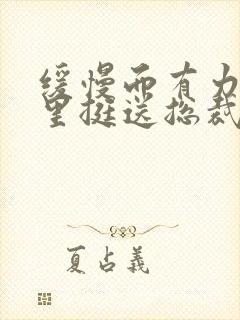 缓慢而有力
里挺送总裁
夏占义